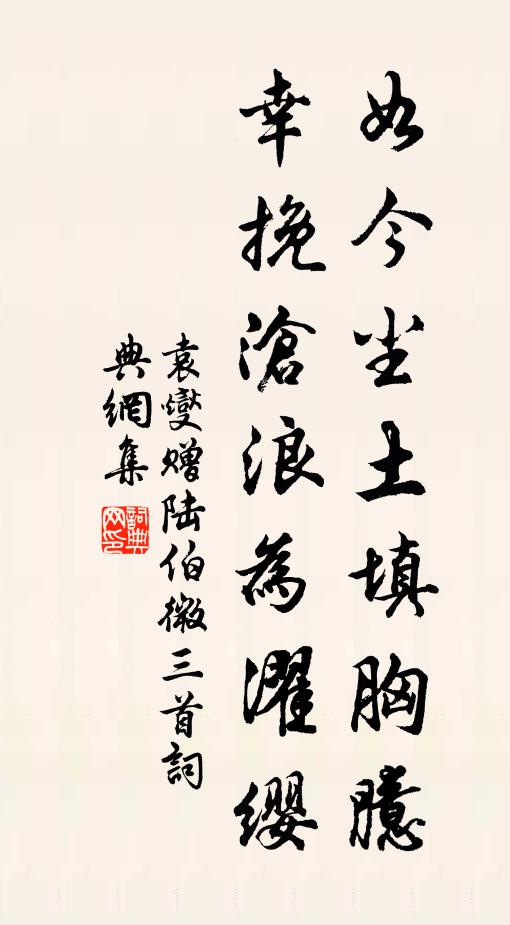 如今尘土填胸臆
幸挽滄浪為濯缨
袁燮赠陆伯微三首詞
典網集
詞典網印